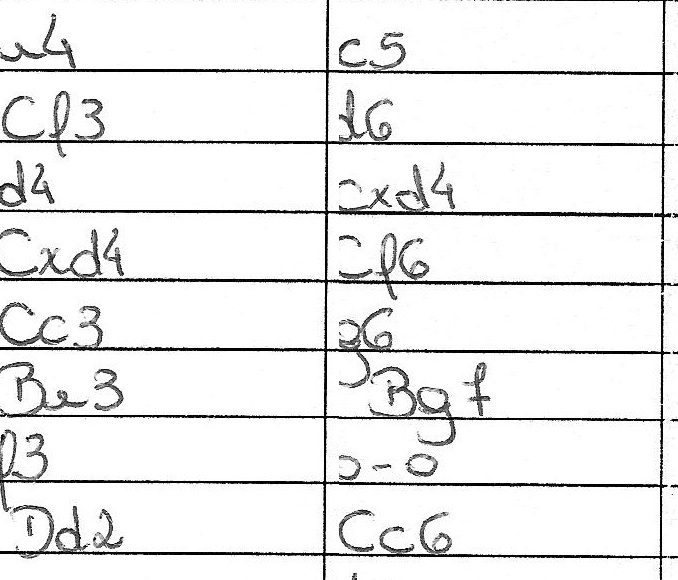 e4 c5
Cf3 d6
d4 cxd4
Cxd4 Cf6
Cc3 g6
Be3 Bg7
f3 0-0
Dd2 Cc6